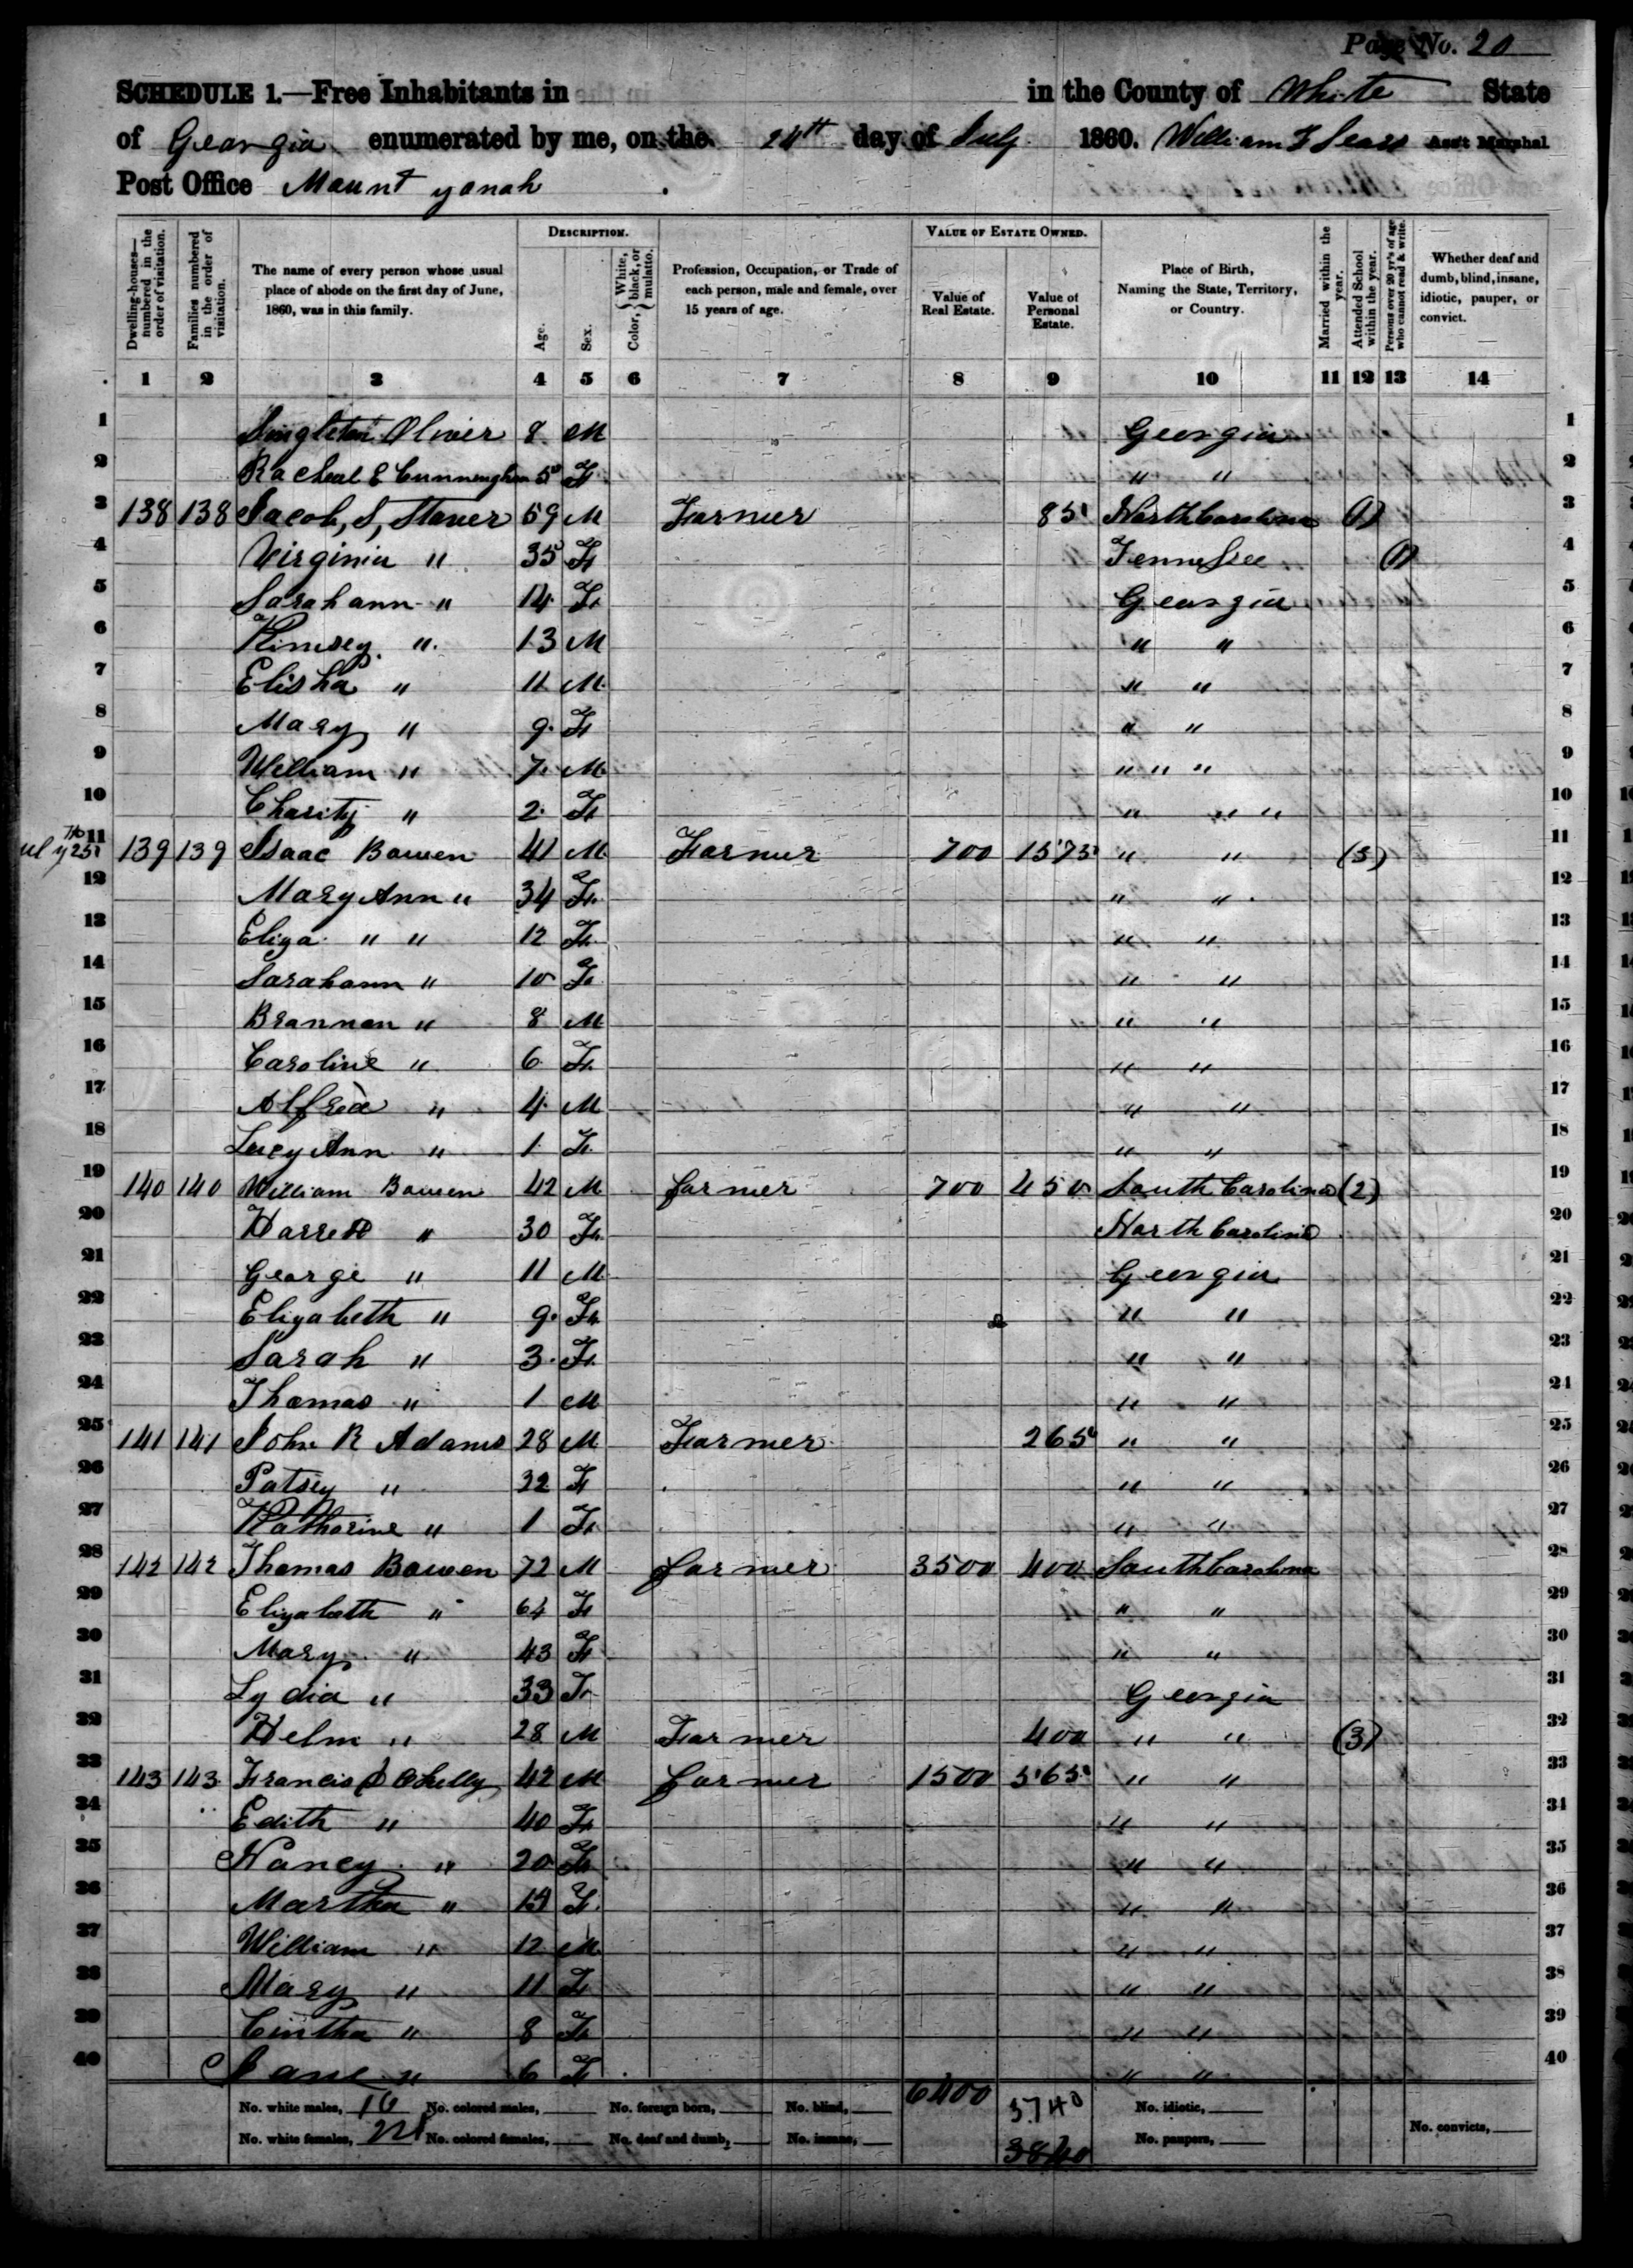 Page No. 20
SCHEDULE 1.—Free Inhabitants in in the County of White State
of Georgia enumerated by me, on the 24th day of July 1860. William F Sears Ass't Marshal
Post Office Mount yonah
Dwelling-houses—numbered in the order of visitation.
Families numbered in the order of visitation.
The name of every person whose usual place of abode on the first day of June, 1860, was in this family.
DESCRIPTION.
Age.
Sex.
Color, { White, black, or mulatto.
Profession, Occupation, or Trade of each person, male and female, over 15 years of age.
VALUE OF ESTATE OWNED.
Value of Real Estate.
Value of Personal Estate.
Place of Birth, Naming the State, Territory, or Country.
Married within the year.
Attended School within the year.
Persons over 20 yr's of age who cannot read & write.
Whether deaf and dumb, blind, insane, idiotic, pauper, or convict.
1 2 3 4 5 6 7 8 9 10 11 12 13 14
1 Singleton Oliver 8 M Georgia 1
2 Racheal E Cunningham 5 F " " 2
3 138 138 Jacob, S, Stover 59 M Farmer 85 North Carolina (1) 3
4 Virginia " 35 F Tennessee (1) 4
5 Sarahann " 14 F Georgia 5
6 Kimsey " 13 M " " 6
7 Elisha " 11 M " " 7
8 Mary " 9 F " " 8
9 William " 7 M " " " 9
10 Charity " 2 F " " " 10
11 139 139 Isaac Bowen 41 M Farmer 700 1575 " " (3) 11
12 Mary Ann " 34 F " " 12
13 Eliza " " 12 F " " 13
14 Sarahann " 10 F " " 14
15 Brannon " 8 M " " 15
16 Caroline " 6 F " " 16
17 Alfred " 4 M " " 17
18 Lucy Ann " 1 F " " 18
19 140 140 William Bowen 42 M farmer 700 450 South Carolina (2) 19
20 Harrett " 30 F North Carolina 20
21 George " 11 M Georgia 21
22 Elizabeth " 9 F " " 22
23 Sarah " 3 F " " 23
24 Thomas " 1 M " " 24
25 141 141 John R Adams 28 M Farmer 265 " " 25
26 Patsey " 32 F " " 26
27 Katharine " 1 F " " 27
28 142 142 Thomas Bowen 72 M farmer 3500 400 South Carolina 28
29 Elizabeth " 64 F " " 29
30 Mary " 43 F " " 30
31 Lydia " 33 F Georgia 31
32 Helm " 28 M Farmer 400 " " (3) 32
33 143 143 Francis Okelly 42 M farmer 1500 565 " " 33
34 Edith " 40 F " " 34
35 Nancy " 20 F " " 35
36 Martha " F " " 36
37 William " 12 M " " 37
38 Mary " 11 F " " 38
39 Cintha " 8 F " " 39
40 Jane " 6 F " " 40
No. white males, 16 No. colored males, No. foreign born, No. blind, 6400 3740 No. idiotic,
No. white females, No. colored females, No. deaf and dumb, No. insane, 3840 No. paupers, No. convicts,